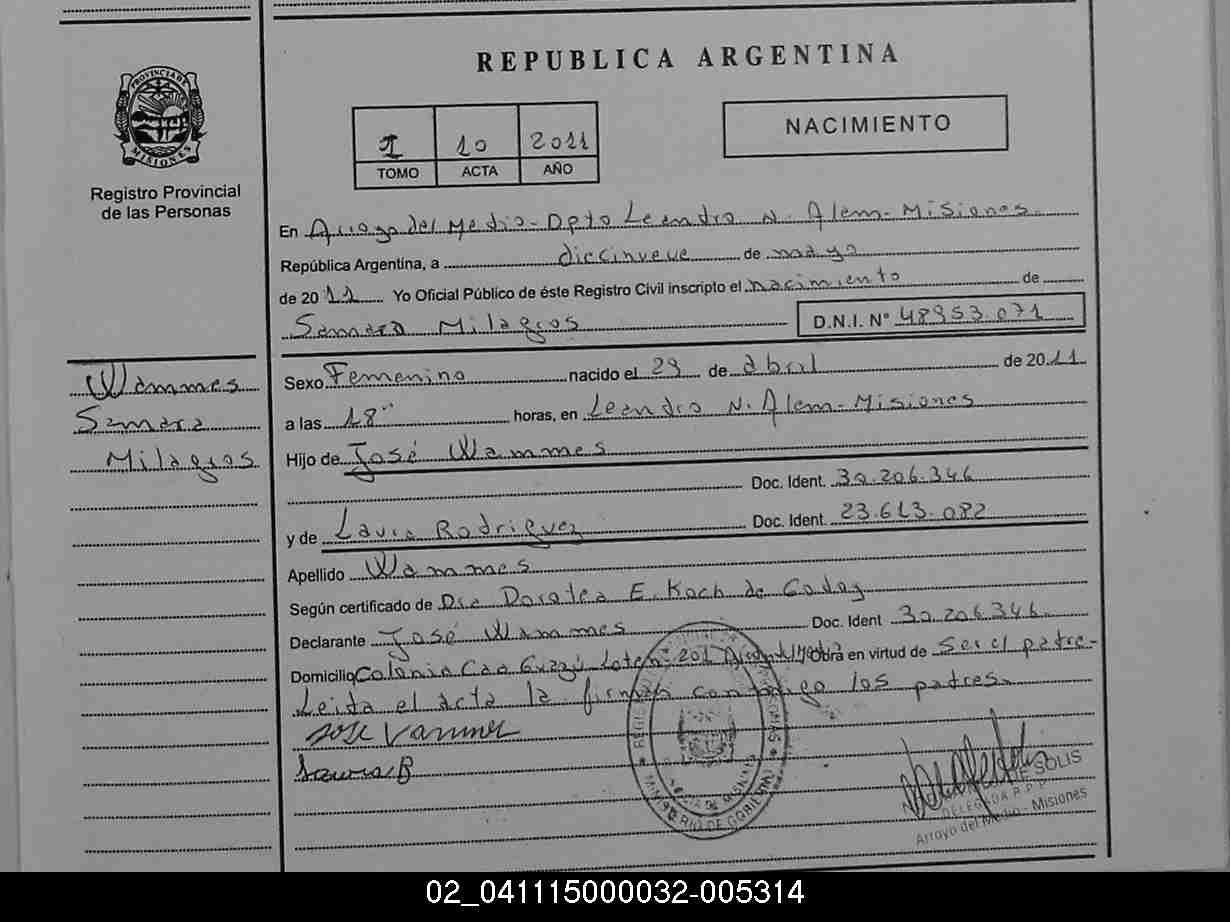 REPUBLICA ARGENTINA
PROVINCIA DE
MISIONES
Registro Provincial
de las Personas
I 10 2011
TOMO ACTA AÑO
NACIMIENTO
En Arroyo del Medio - Dpto Leandro N. Alem - Misiones
República Argentina, a diecinueve de mayo
de 2011 Yo Oficial Público de éste Registro Civil inscripto el nacimiento de
Samara Milagros D.N.I. N° 48953.071
Wammes
Samara
Milagros
Sexo Femenino nacido el 29 de abril de 2011
a las 18 horas, en Leandro N. Alem - Misiones
Hijo de José Wammes
Doc. Ident. 30.206.346
y de Laura Rodriguez Doc. Ident. 23.613.082
Apellido Wammes
Según certificado de Dra Dorotea E. Koch de Godoy
Declarante José Wammes Doc. Ident 30.206.346
Domicilio Colonia Caa Guazú Lote n° 201 Obra en virtud de ser el padre-
Leida el acta la firman conmigo los padres.
Jose
Laura R
DE SOLIS
DELEGADA R.P.P.
Arroyo del Medio - Misiones
MINISTERIO DE GOBIERNO
02_041115000032-005314